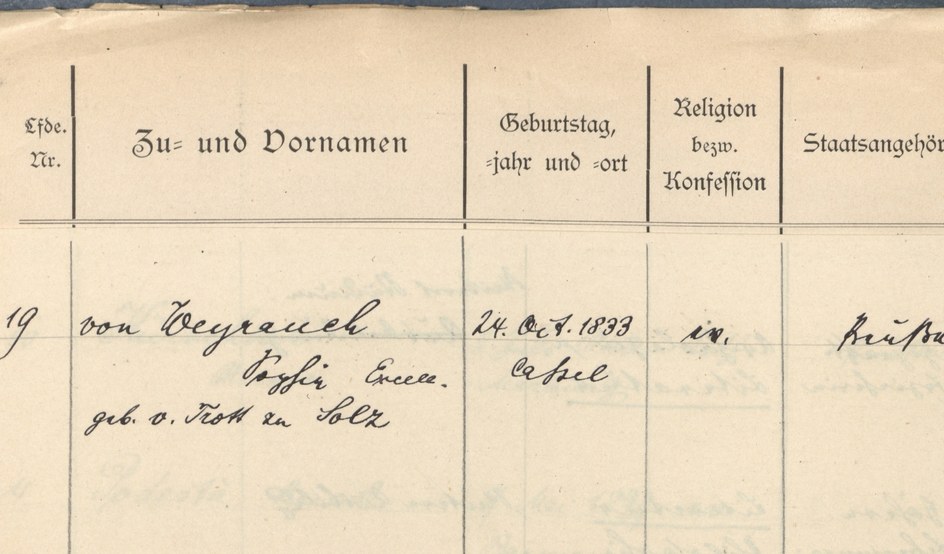 Lfde.
Nr.
Zu= und Vornamen
Geburtstag,
=jahr und =ort
Religion
bezw.
Konfession
Staatsangehör
19 von Weyrauch 24. Oct. 1833 ev. Preuße
Sophie Excell. Cassel
geb. v. Trott zu Solz